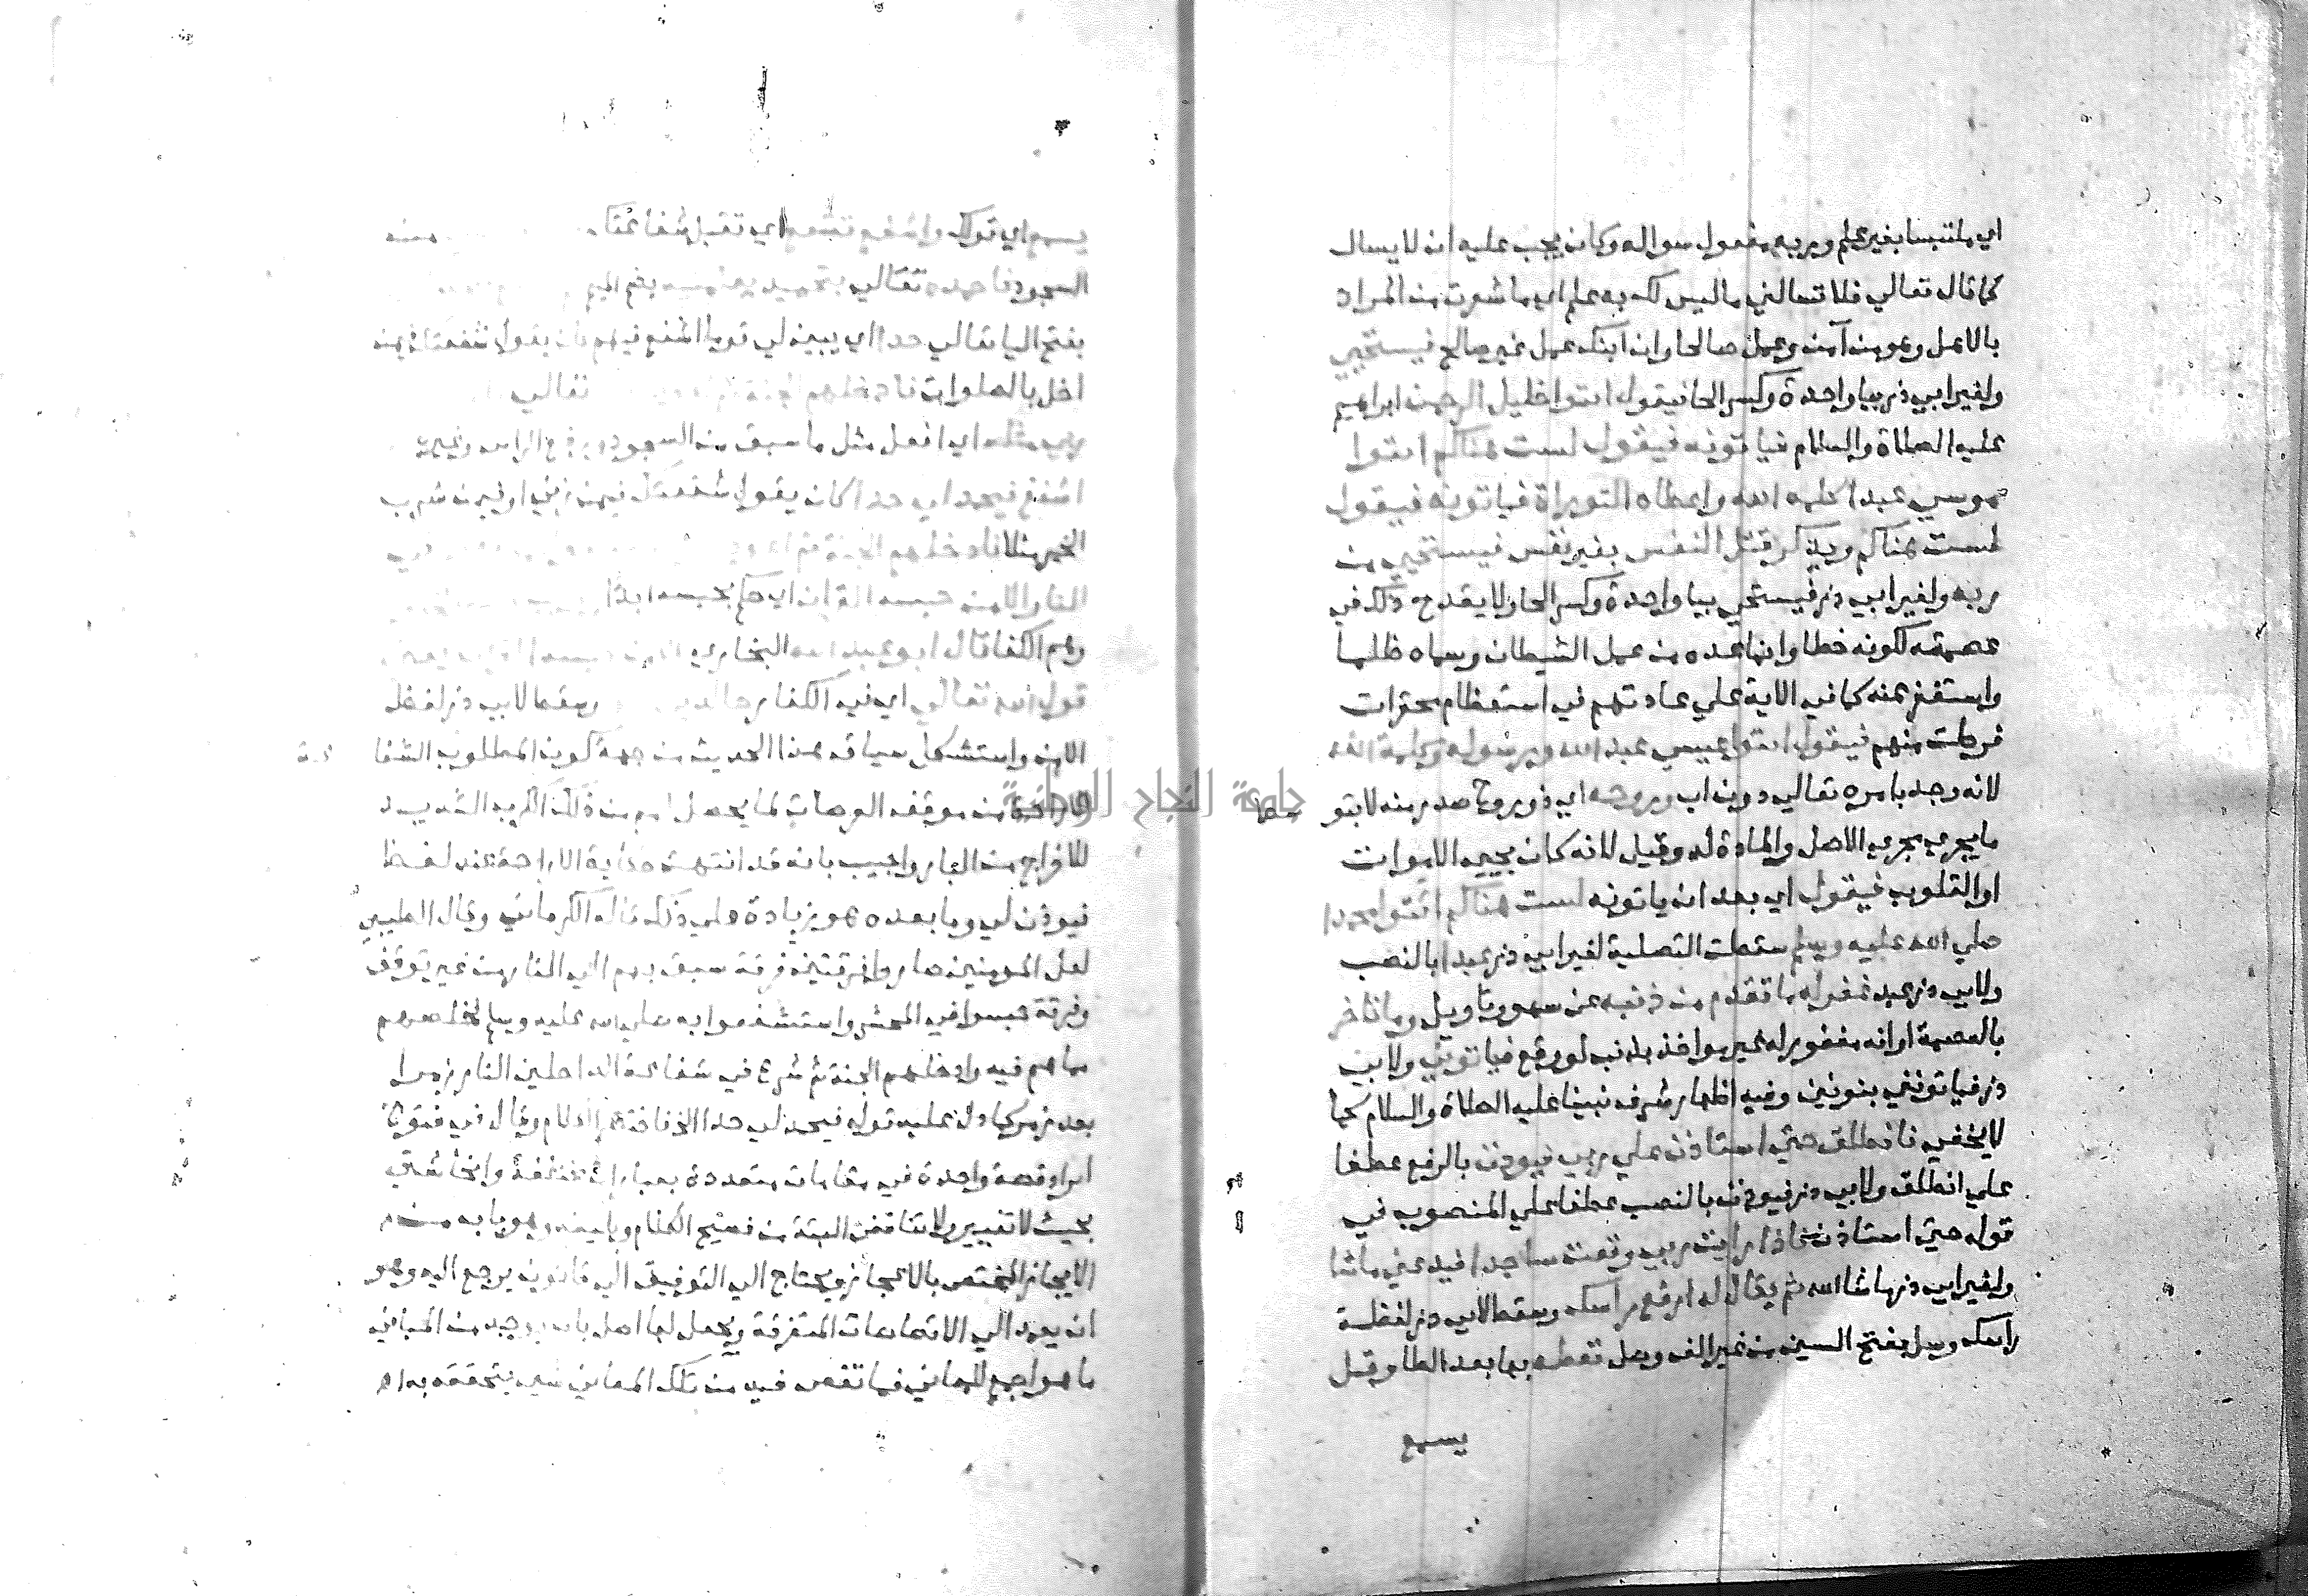 اي ملتبسا بغير علم وربه مفعول سواله وكان يجب عليه ان لا يسال
كما قال تعالي فلا تسالني ما ليس لك به علم اي ما شعرت من المراد
بالاهل وهو من آمن وعمل صالحا وان ابنك عمل غير صالح فيستحيي
ولغير ابي ذر بيا واحدة وكسر الحا فيقول ائتوا خليل الرحمن ابراهيم
عليه الصلاة والسلام فياتونه فيقول لست هناكم ائتوا
موسي عبدا كلمه الله واعطاه التوراة فياتونه فيقول
لست هناكم ويذكر قتل النفس بغير نفس فيستحيي من
ربه ولغير ابي ذر فيستحي بيا واحدة وكسر الحا ولا يقدح ذلك في
عصمته لكونه خطا وانما عده من عمل الشيطان وسماه ظلما
واستغفر عنه كما في الاية علي عادتهم في استعظام محقرات
فرطت منهم فيقول ائتوا عيسي عبد الله ورسوله وكلمة الله
لانه وجد بامره تعالي دون اب وروحه اي ذو روح صدر منه لا بتوسط
ما يجري مجري الاصل والمادة له وقيل لانه كان يحيي الاموات
او القلوب فيقول اي بعد ان ياتونه لست هناكم ائتوا محمدا
صلي الله عليه وسلم سقطت التصلية لغير ابي ذر عبدا بالنصب
ولابي ذر عبد غفر له ما تقدم من ذنبه عن سهو وتاويل وما تاخر
بالعصمة او انه مغفور له غير مواخذ بذنب لو وقع فياتوني ولابي
ذر فياتونني بنونين وفيه اظهار شرف نبينا عليه الصلاة والسلام كما
لا يخفي فانطلق حتي استاذن علي ربي فيوذن بالرفع عطفا
علي انطلق ولابي ذر فيوذن بالنصب عطفا علي المنصوب في
قوله حتي استاذن فاذا رايت ربي وقعت ساجدا فيدعني ما شا
ولغير ابي ذر ما شا الله ثم يقال له ارفع راسك وسقط لابي ذر لفظة
راسك وسل بفتح السين من غير الف وصل تعطه بها بعد الطا وقل
يسمع
يسمع اي قولك واشفع تشفع اي تقبل شفاعتك
السجود فاحمده تعالي بتحميد يعلمنيه
بفتح اليا تعالي حدا اي يبين لي قوما اشفع فيهم كان يقول شفعتك فيمن
اخل بالصلوات فادخلهم الجنة تعالي
ربي مثله اي افعل مثل ما سبق من السجود ورفع الراس وغيره
اشفع فيحد لي حدا كان يقول شفعتك فيمن زني او فيمن شرب
الخمر مثلا فادخلهم الجنة ثم
النار الا من حبسه القران اي حكم بحبسه ابدا
وهم الكفار قال ابو عبد الله البخاري
قول الله تعالي اي في الكفار خالدين وسقط لابي ذر لفظ
الا من واستشكل سياق هذا الحديث من جهة كون المطلوب الشفاعة
للاراحة من موقف العرصات لما يحصل لهم من ذلك الكرب الشديد
للاخراج من النار واجيب بانه قد انتهت حكاية الاراحة عند لفظ
فيوذن لي وما بعده هو زيادة علي ذلك قاله الكرماني وقال الطيبي
لعل المومنين صاروا فرقتين فرقة سيق بهم الي النار من غير توقف
وفرقة حبسوا في المحشر واستشفعوا به صلي الله عليه وسلم فخلصهم
مما هم فيه وادخلهم الجنة ثم شرع في شفاعة الداخلين النار زمرا
بعد زمر كما دل عليه قوله فيحد لي حدا الخ فاختصر الكلام وقال في فتوح
ايراد قصة واحدة في مقامات متعددة بعبارات مختلفة وانحا شتي
بحيث لا تغيير ولا تناقض البتة من فصيح الكلام وبليغه وهو باب من
الايجاز المختص بالاعجاز ويحتاج الي التوفيق الي قانون يرجع اليه وهو
ان يعمد الي الاقتصاصات المتفرقة ويجعل لها اصل بان يوجد من المباني
ما هو اجمع للمعاني فما نقص فيه من تلك المعاني شي يلحقه به اه